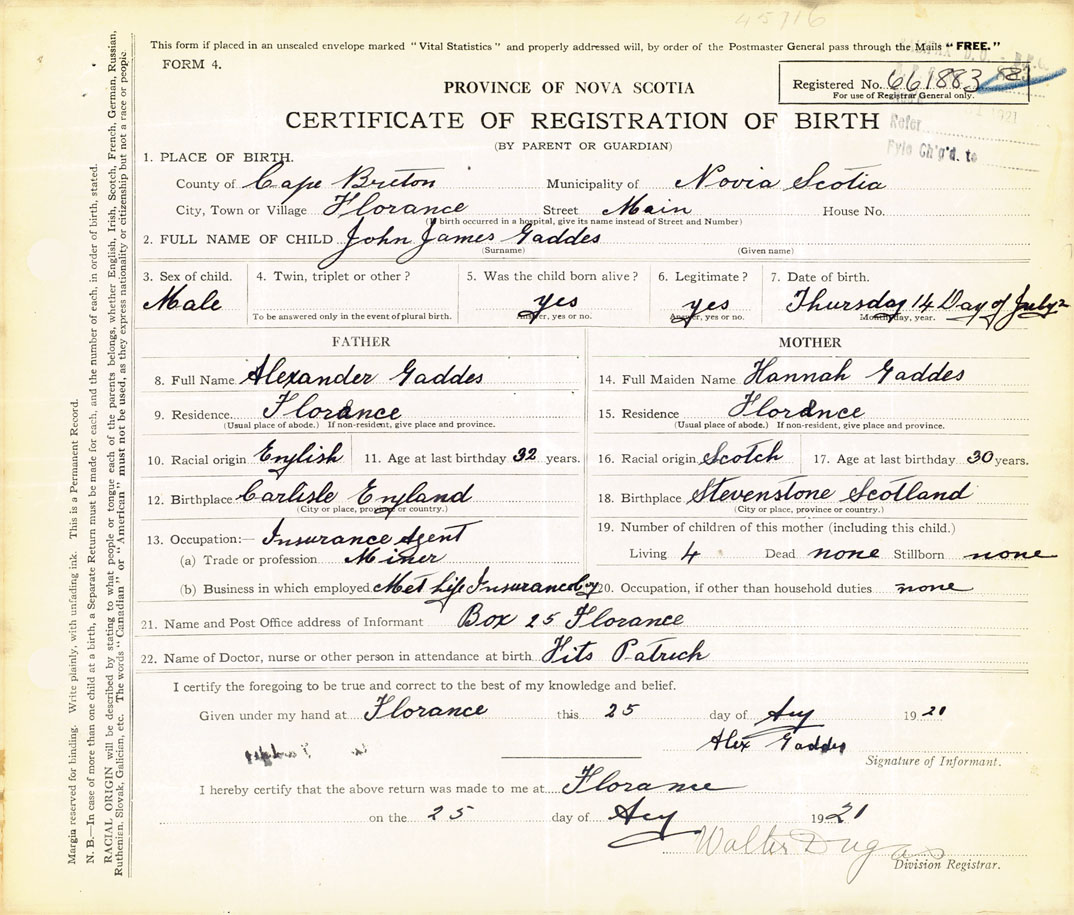 45716
This form if placed in an unsealed envelope marked "Vital Statistics" and properly addressed will, by order of the Postmaster General pass through the Mails "FREE."
FORM 4.
Registered No. 661883
For use of Registrar General only.
1921
Refer
Fyle Ch'g'd. to
PROVINCE OF NOVA SCOTIA
CERTIFICATE OF REGISTRATION OF BIRTH
(BY PARENT OR GUARDIAN)
1. PLACE OF BIRTH.
County of Cape Breton Municipality of Novia Scotia
City, Town or Village Florance Street Main House No.
(If birth occurred in a hospital, give its name instead of Street and Number)
2. FULL NAME OF CHILD John James Gaddes
(Surname) (Given name)
3. Sex of child. 4. Twin, triplet or other? 5. Was the child born alive? 6. Legitimate? 7. Date of birth.
Male yes yes Thursday 14 Day of July
To be answered only in the event of plural birth. Answer, yes or no. Answer, yes or no. Month, day, year.
FATHER MOTHER
8. Full Name Alexander Gaddes 14. Full Maiden Name Hannah Gaddes
9. Residence Florance 15. Residence Florance
(Usual place of abode.) If non-resident, give place and province. (Usual place of abode.) If non-resident, give place and province.
10. Racial origin English 11. Age at last birthday 32 years. 16. Racial origin Scotch 17. Age at last birthday 30 years.
12. Birthplace Carlisle England 18. Birthplace Stevenstone Scotland
(City or place, province or country.) (City or place, province or country.)
13. Occupation:— Insurance Agent 19. Number of children of this mother (including this child.)
(a) Trade or profession Miner Living 4 Dead none Stillborn none
(b) Business in which employed Met Life Insurance Coy 20. Occupation, if other than household duties none
21. Name and Post Office address of Informant Box 25 Florance
22. Name of Doctor, nurse or other person in attendance at birth. Fits Patrick
I certify the foregoing to be true and correct to the best of my knowledge and belief.
Given under my hand at Florance this 25 day of Aug 1921
Alex Gaddes
Signature of Informant.
I hereby certify that the above return was made to me at Florance
on the 25 day of Aug 1921
Walter Dugas
Division Registrar.
Margin reserved for binding. Write plainly, with unfading ink. This is a Permanent Record.
N. B.—In case of more than one child at a birth, a Separate Return must be made for each, and the number of each, in order of birth, stated.
RACIAL ORIGIN will be described by stating to what people or tongue each of the parents belongs, whether English, Irish, Scotch, French, German, Russian,
Ruthenian, Slovak, Galician, etc. The words "Canadian" or "American" must not be used, as they express nationality or citizenship but not a race or people.